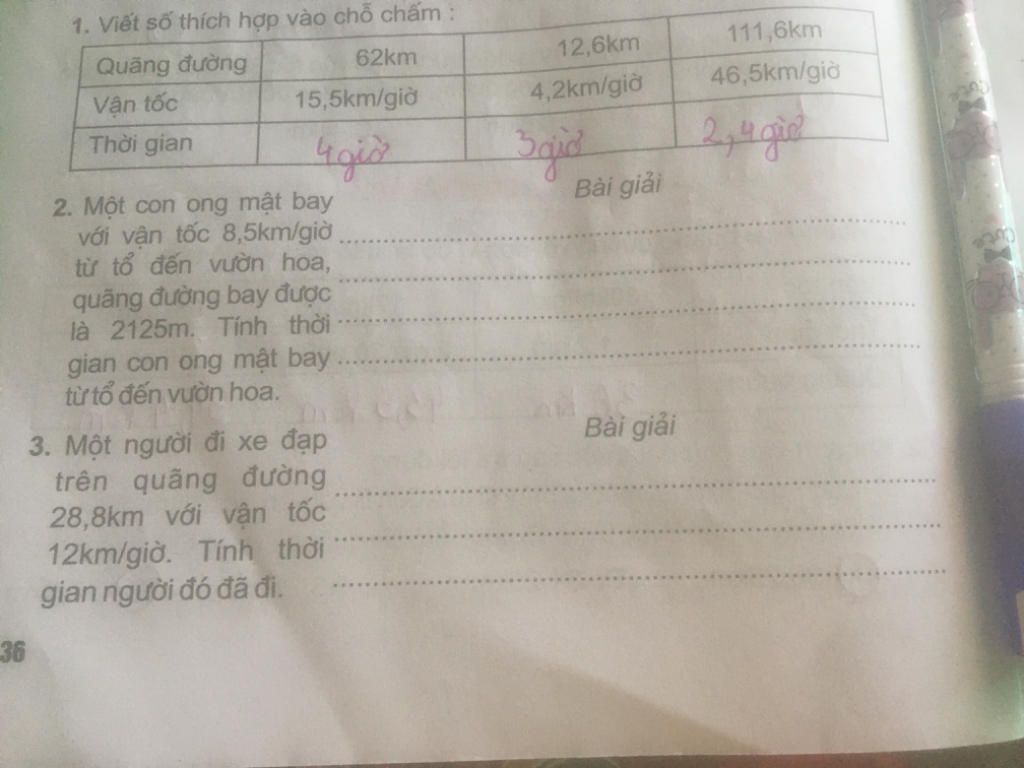 1. Viết số thích hợp vào chỗ chấm :
Quãng đường 62km 12,6km 111,6km
Vận tốc 15,5km/giờ 4,2km/giờ 46,5km/giờ
Thời gian 4 giờ 3 giờ 2,4 giờ
2. Một con ong mật bay
với vận tốc 8,5km/giờ
từ tổ đến vườn hoa,
quãng đường bay được
là 2125m. Tính thời
gian con ong mật bay
từ tổ đến vườn hoa.
Bài giải
3. Một người đi xe đạp
trên quãng đường
28,8km với vận tốc
12km/giờ. Tính thời
gian người đó đã đi.
Bài giải
36